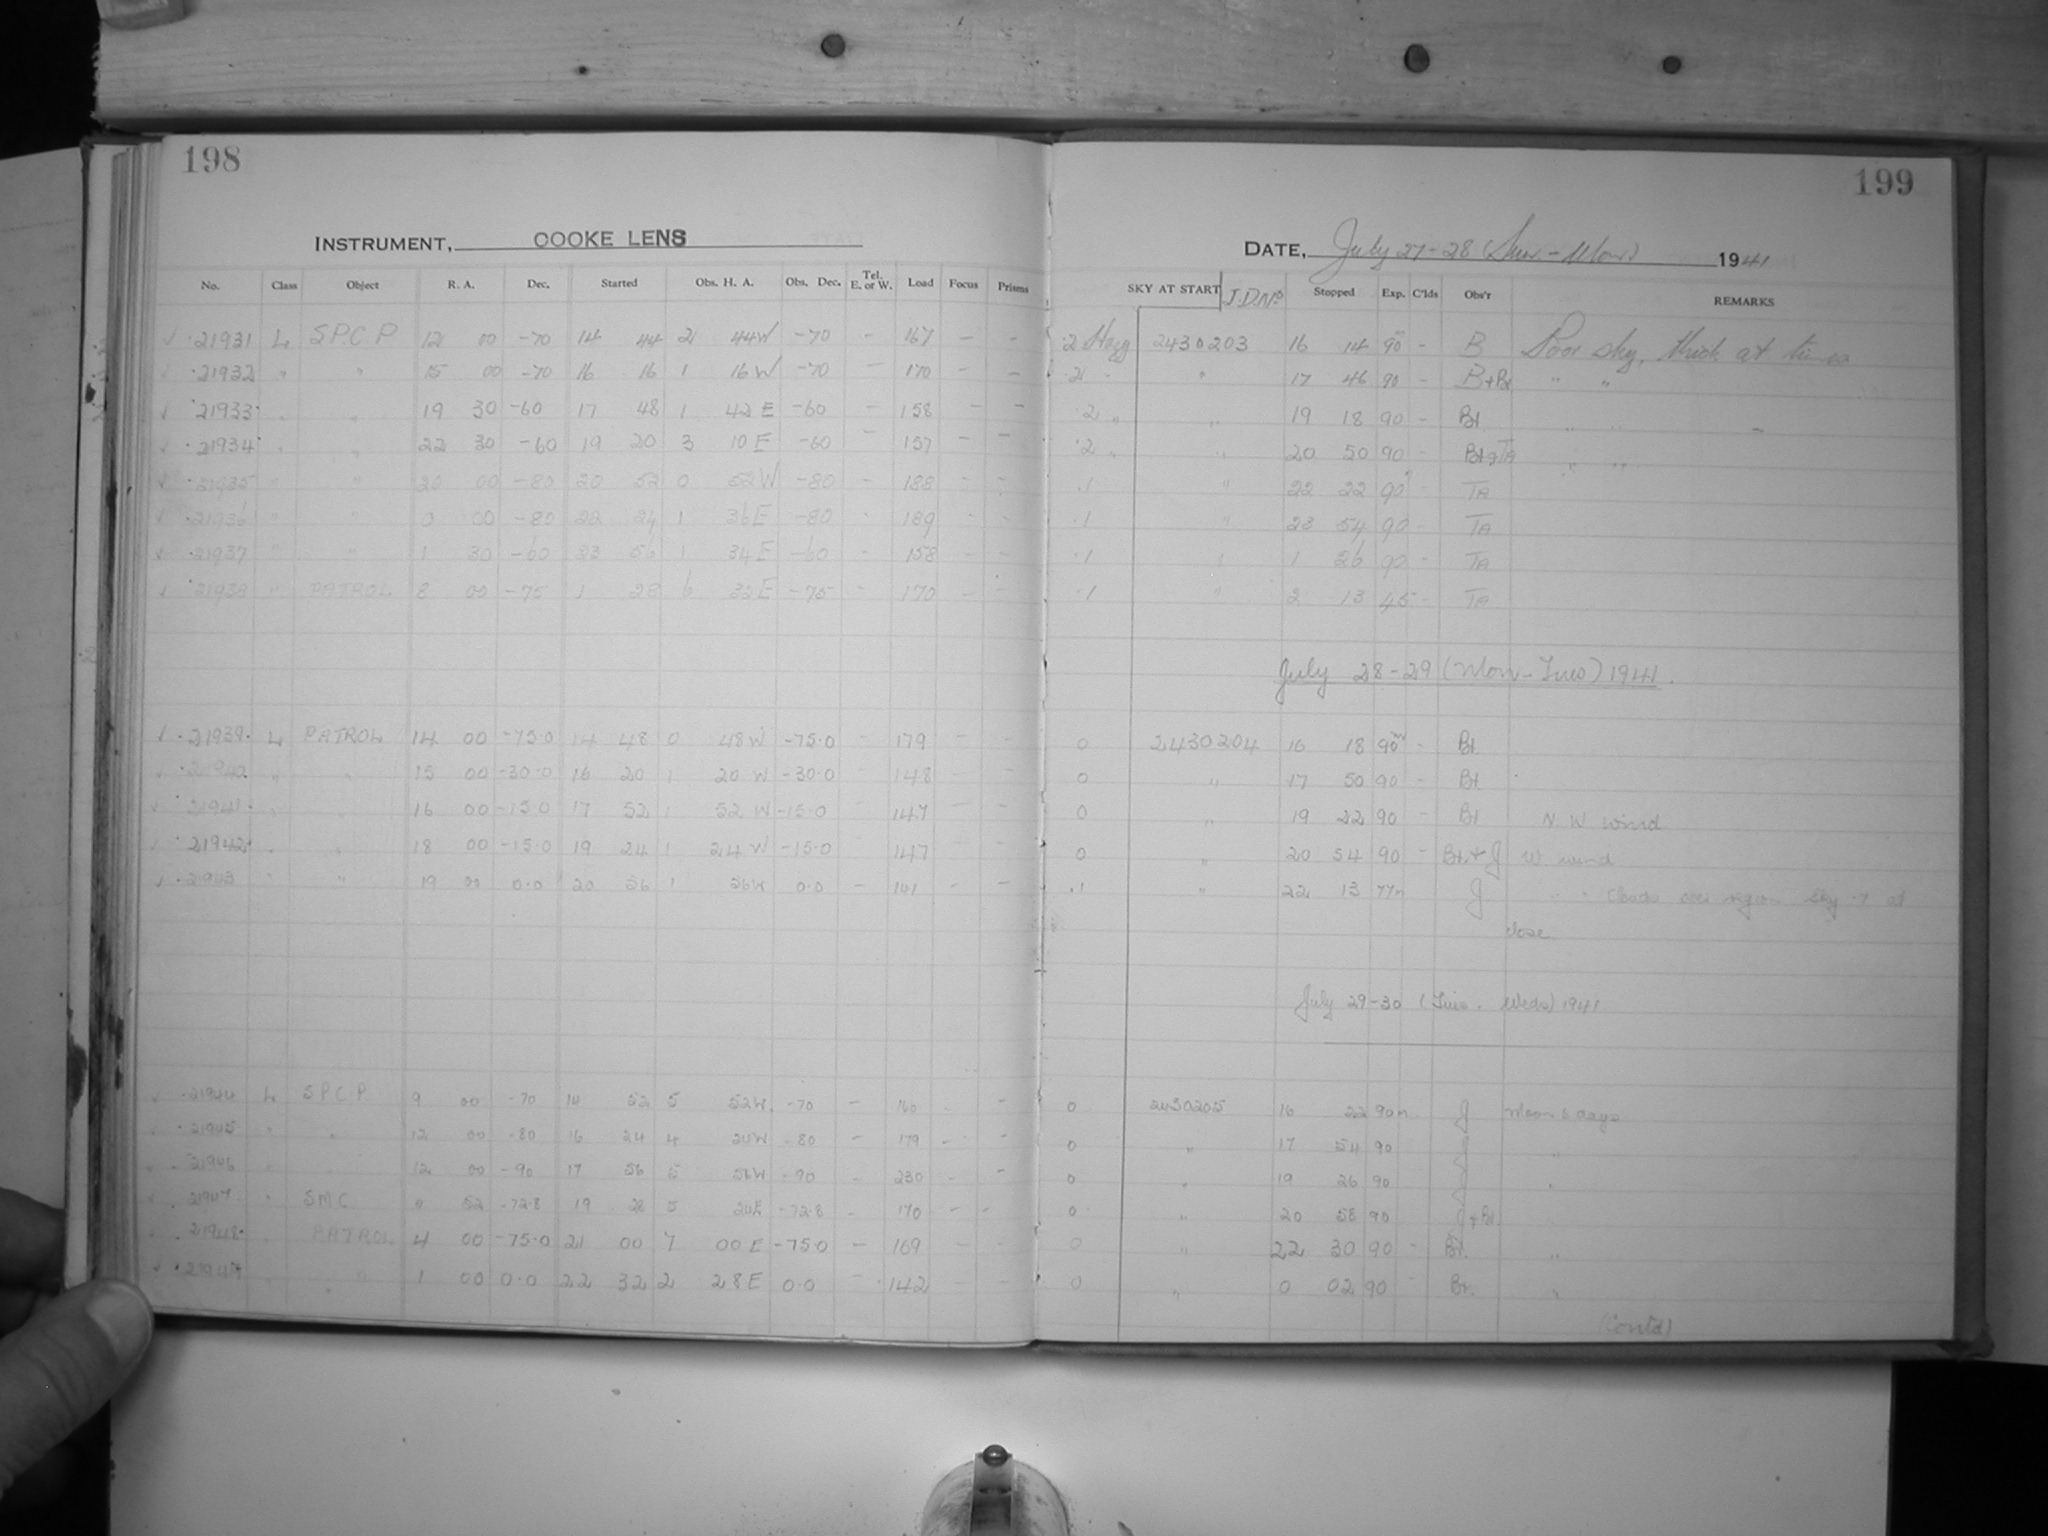 198
199
INSTRUMENT, COOKE LENS
DATE, July 27-28 (Sun-Mon) 1941
No. Class Object R. A. Dec. Started Obs. H. A. Obs. Dec. Tel. E. or W. Load Focus Prisms SKY AT START J.D.No. Stopped Exp. C'lds Obs'r REMARKS
21931 L SPCP 12 00 -70 14 44 2 44W -70 - 167 - - .2 Hazy 2430203 16 14 90 - B Poor sky, thick at times
21932 " " 15 00 -70 16 16 1 16W -70 - 170 - - .2 " " 17 46 90 - B+Bt " "
21933 " " 19 30 -60 17 48 1 42E -60 - 158 - - .2 " " 19 18 90 - Bt " "
21934 " " 22 30 -60 19 20 3 10E -60 - 157 - - .2 " " 20 50 90 - Bt+Ta " "
21935 " " 20 00 -80 20 52 0 52W -80 - 188 - - .1 " 22 22 90 - Ta
21936 " " 0 00 -80 22 24 1 36E -80 - 189 - - .1 " 23 54 90 - Ta
21937 " " 1 30 -60 23 56 1 34E -60 - 158 - - .1 " 1 26 90 - Ta
21938 " PATROL 8 00 -75 1 28 6 32E -75 - 170 - - .1 " 2 13 45 - Ta
July 28-29 (Mon-Tues) 1941.
21939 L PATROL 14 00 -75.0 14 48 0 48W -75.0 - 179 - - 0 2430204 16 18 90m - Bt
21940 " " 15 00 -30.0 16 20 1 20W -30.0 148 - - 0 " 17 50 90 - Bt
21941 " " 16 00 -15.0 17 52 1 52W -15.0 - 147 - - 0 " 19 22 90 - Bt N.W wind
21942 " " 18 00 -15.0 19 24 1 24W -15.0 147 - - 0 " 20 54 90 - Bt+J W. wind
21943 " " 19 00 0.0 20 56 1 56W 0.0 - 141 - - .1 " 22 13 77m J " " Clouds over region sky .7 at
close
July 29-30 (Tues. Weds) 1941
21944 L SPCP 9 00 -70 14 52 5 52W -70 - 160 - 0 2430205 16 22 90m J Moon 6 days
21945 " " 12 00 -80 16 24 4 24W -80 - 179 - - 0 " 17 54 90 J "
21946 " " 12 00 -90 17 56 5 56W -90 - 230 - - 0 " 19 26 90 J "
21947 " SMC 0 52 -72.8 19 28 5 24E -72.8 - 170 - - 0 " 20 58 90 J+Bt
21948 PATROL 4 00 -75.0 21 00 7 00E -75.0 - 169 - - 0 " 22 30 90 - Bt. "
21949 " " 1 00 0.0 22 32 2 28E 0.0 - 142 - - 0 " 0 02 90 Bt. "
(Contd)